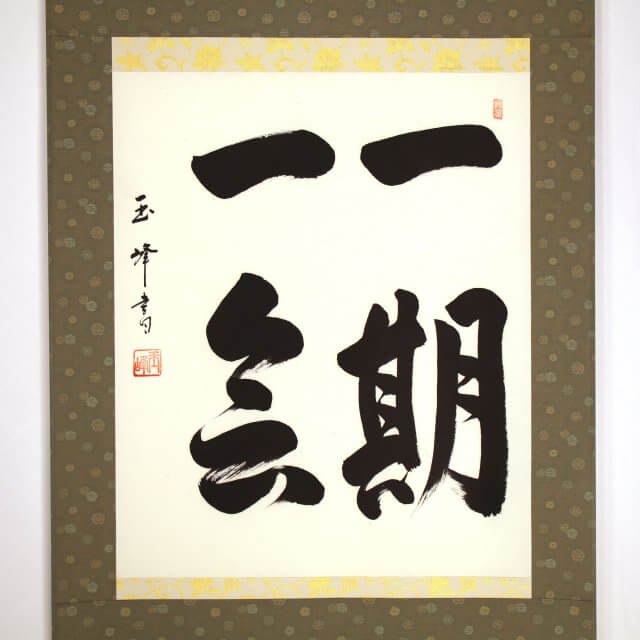 一期
一会
玉峰書